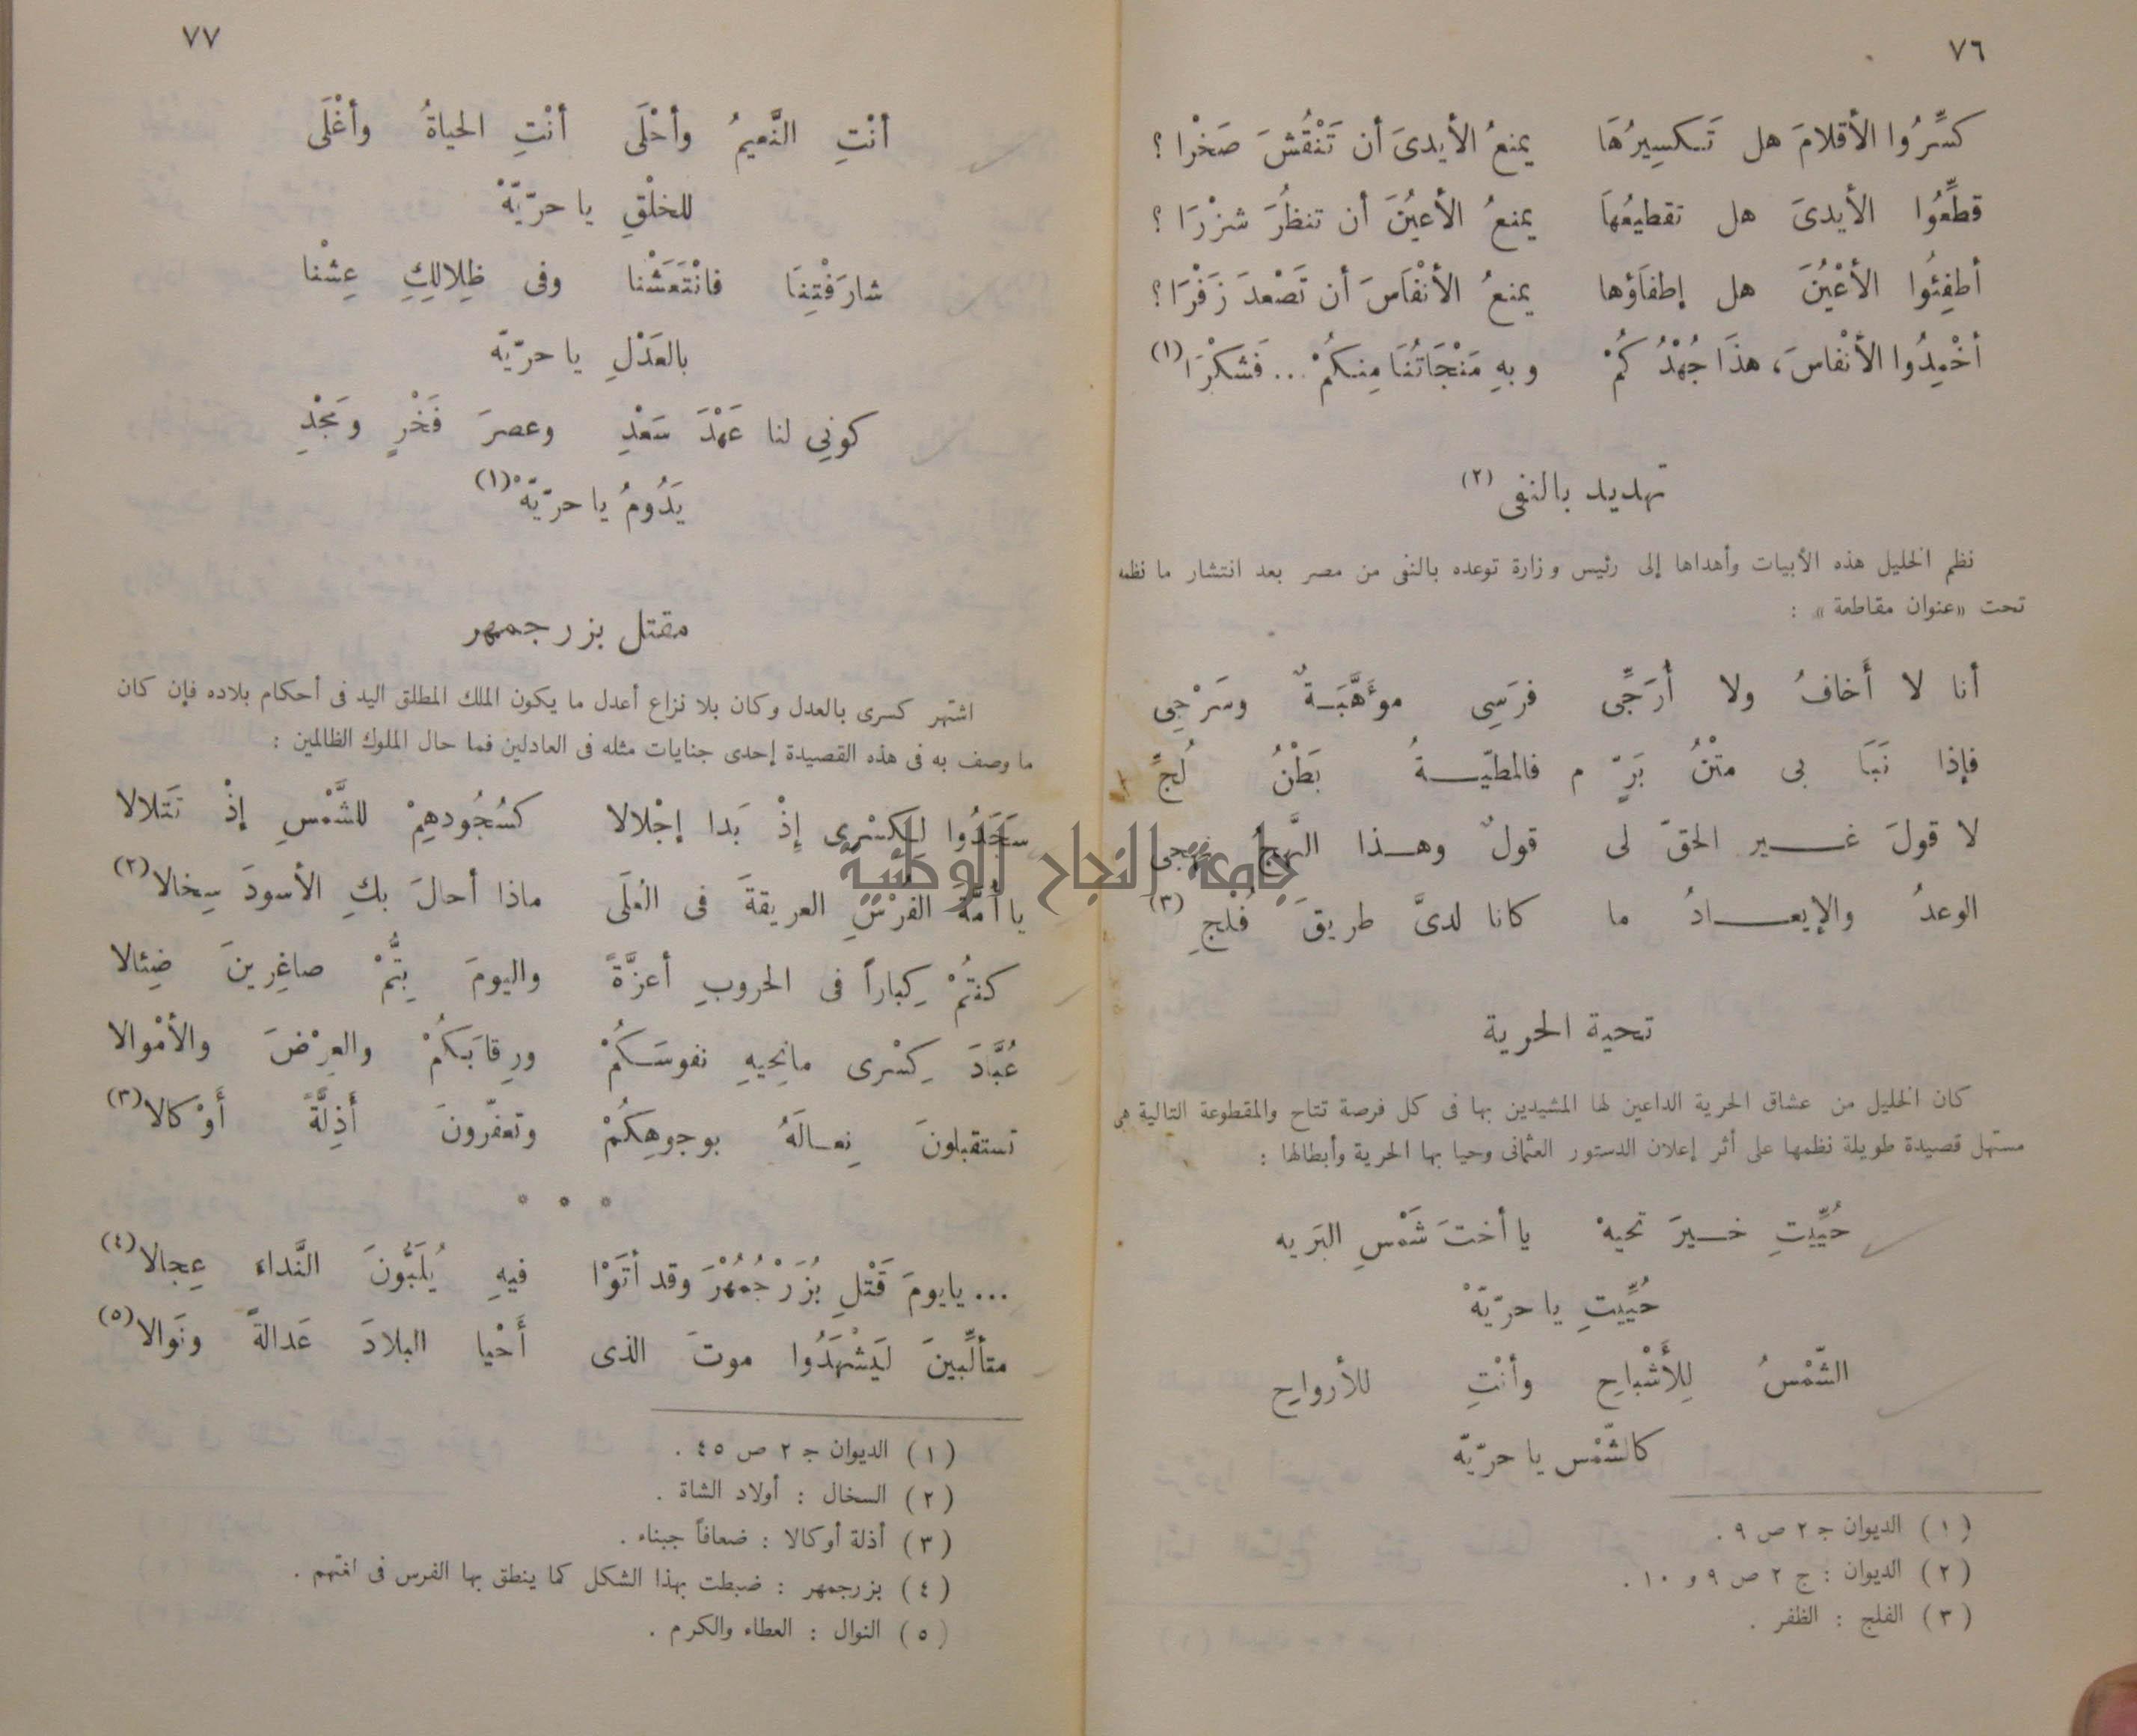 ٧٦
كسِّرُوا الأقلامَ هل تَكسِيرُهَا يمنعُ الأيدىَ أن تَنْقُشَ صَخْرا ؟
قطِّعُوا الأيدىَ هل تقطيعُهاَ يمنعُ الأعيُنَ أن تنظُرَ شزْرَا ؟
أطفِئُوا الأعْيُنَ هل إطفَاؤها يمنعُ الأنْفَاسَ أن تَصْعدَ زَفْرَا ؟
أخْمِدُوا الأنْفاسَ، هذَا جُهْدُكُمْ وبهِ مَنْجَاتُنَا مِنكُمْ ... فَشكْرَا (١)
تهديد بالنفى (٢)
نظم الخليل هذه الأبيات وأهداها إلى رئيس وزارة توعده بالنفى من مصر بعد انتشار ما نظمه
تحت «عنوان مقاطعة» :
أنا لا أَخافُ ولا أُرَجِّى فرَسِى مؤَهَّبَةٌ وسَرْجِى
فإذا نَبَا بى متْنُ بَرٍّ م فالمطيّةُ بَطْنُ لُجِّ
لا قولَ غير الحقّ لى قولٌ وهذا النَّهجُ نهجى
الوعدُ والإيعادُ ما كانا لدىَّ طريقَ فُلْجِ (٣)
تحية الحرية
كان الخليل من عشاق الحرية الداعين لها المشيدين بها فى كل فرصة تتاح والمقطوعة التالية هى
مستهل قصيدة طويلة نظمها على أثر إعلان الدستور العثمانى وحيا بها الحرية وأبطالها :
حُيِّيتِ خيرَ تحيهْ يا أختَ شَمْسِ البَريه
حُيِّيتِ يا حرّيّهْ
الشّمْسُ لِلأَشْباحِ وأنْتِ للأرواحِ
كالشّمْس يا حرّيّه
(١) الديوان ج ٢ ص ٩ .
(٢) الديوان : ج ٢ ص ٩ و ١٠ .
(٣) الفلج : الظفر .
٧٧
أنْتِ النَّعيمُ وأحْلَى أنْتِ الحياةُ وأغْلَى
للخلْقِ يا حرّيّهْ
شارَفْتِنَا فانْتَعَشْنا وفى ظِلالِكِ عِشْنا
بالعَدْلِ يا حرّيّه
كونِى لنا عَهْدَ سَعْدِ وعصرَ فَخْرٍ ومَجْدِ
يَدُومُ يا حرّيّهْ (١)
مقتل بزرجمهر
اشتهر كسرى بالعدل وكان بلا نزاع أعدل ما يكون الملك المطلق اليد فى أحكام بلاده فإن كان
ما وصف به فى هذه القصيدة إحدى جنايات مثله فى العادلين فما حال الملوك الظالمين :
سَجَدُوا لِكسْرى إِذْ بَدا إجْلالا كسُجُودهِمْ للشَّمْسِ إذْ تَتَلالا
يا أُمَّةَ الفُرْسِ العريقةَ فى العُلَى ماذا أحالَ بكِ الأسودَ سِخالا (٢)
كنتُمْ كِباراً فى الحروبِ أعزَّةً واليومَ بِتُّمْ صاغِرِينَ ضِئالا
عُبَّادَ كِسْرى مانِحيهِ نفوسَكُمْ ورِقابَكُمْ والعِرْضَ والأمْوالا
تستقبلونَ نِعالَهُ بوجوهِكُمْ وتعفّرونَ أَذِلَّةً أَوْكالا (٣)
° ° °
... يايومَ قَتْلِ بُزَرْجُمُهْرَ وقد أتَوْا فيهِ يُلَبُّونَ النَّداء عِجالا (٤)
متألِّبينَ لَيَشْهَدُوا موتَ الذى أَحْيا البلادَ عَدالةً ونَوالا (٥)
(١) الديوان ج ٢ ص ٤٥ .
(٢) السخال : أولاد الشاة .
(٣) أذلة أوكالا : ضعافاً جبناء .
(٤) بزرجمهر : ضبطت بهذا الشكل كما ينطق بها الفرس فى لغتهم .
(٥) النوال : العطاء والكرم .
جامعة النجاح الوطنية